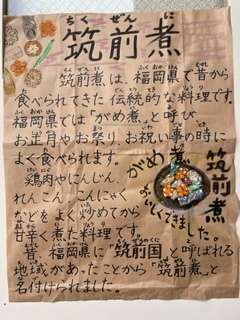 ちくぜんに
筑前煮
筑前煮は、福岡県で昔から
食べられてきた伝統的な料理です。
福岡県では「がめ煮」と呼び
お正月やお祭り お祝い事の時に
よく食べられます。
鶏肉やにんじん、
れんこん、こんにゃく
などをよく炒めてから
甘辛く煮た料理です。
昔、福岡県に「筑前国」と呼ばれる
地域があったことから「筑前煮」と
名付けられました。
筑前煮
がめ煮
よいしくできました。